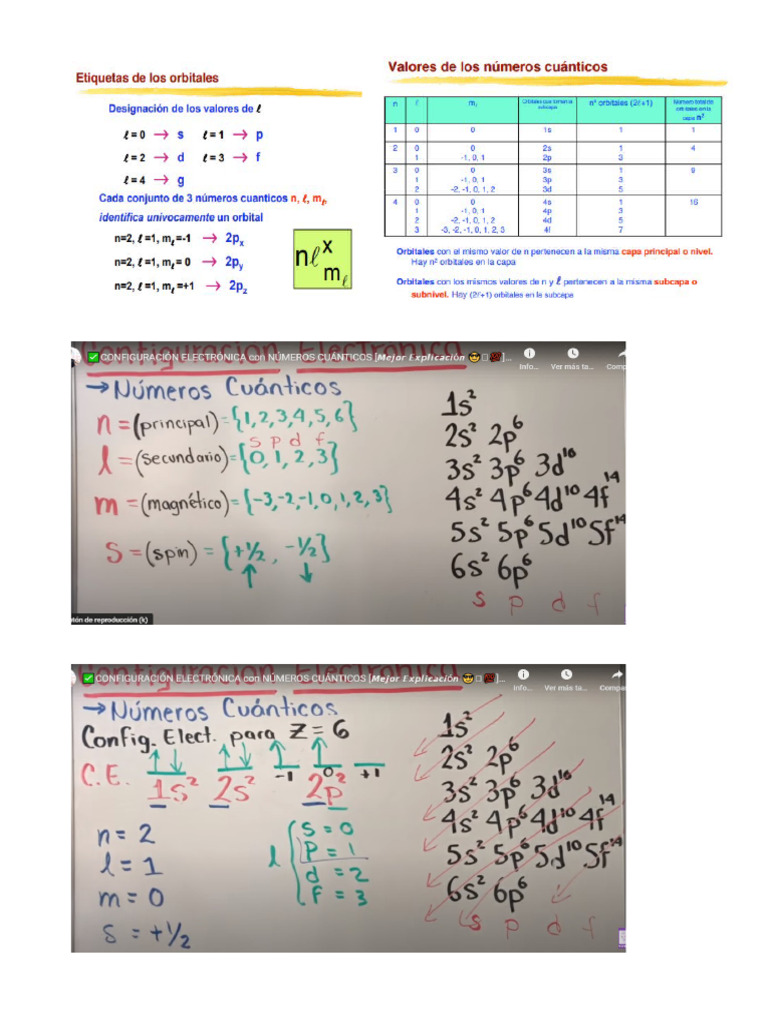 Etiquetas de los orbitales
Designación de los valores de ℓ
ℓ = 0 → s ℓ = 1 → p
ℓ = 2 → d ℓ = 3 → f
ℓ = 4 → g
Cada conjunto de 3 números cuanticos n, ℓ, mℓ,
identifica univocamente un orbital
n=2, ℓ =1, mℓ =-1 → 2px
n=2, ℓ =1, mℓ = 0 → 2py
n=2, ℓ =1, mℓ =+1 → 2pz
nℓ x mℓ
Valores de los números cuánticos
n ℓ mℓ nº orbitales (2ℓ+1) Número total de orbitales en la capa n²
1 0 0 1s 1 1
2 0 0 2s 1 4
1 -1, 0, 1 2p 3
3 0 0 3s 1 9
1 -1, 0, 1 3p 3
2 -2, -1, 0, 1, 2 3d 5
4 0 0 4s 1 16
1 -1, 0, 1 4p 3
2 -2, -1, 0, 1, 2 4d 5
3 -3, -2, -1, 0, 1, 2, 3 4f 7
Orbitales con el mismo valor de n pertenecen a la misma capa principal o nivel.
Hay n² orbitales en la capa
Orbitales con los mismos valores de n y ℓ pertenecen a la misma subcapa o
subnivel. Hay (2ℓ+1) orbitales en la subcapa
Configuración Electrónica
✅ CONFIGURACIÓN ELECTRÓNICA con NÚMEROS CUÁNTICOS [Mejor Explicación 😎 💯]...
Info... Ver más ta... Comp
→ Números Cuánticos
n = (principal) = {1, 2, 3, 4, 5, 6}
s p d f
l = (secundario) = {0, 1, 2, 3}
m = (magnético) = {-3, -2, -1, 0, 1, 2, 3}
S = (spin) = {+½, -½}
↑ ↓
1s²
2s² 2p⁶
3s² 3p⁶ 3d¹⁰
4s² 4p⁶ 4d¹⁰ 4f¹⁴
5s² 5p⁶ 5d¹⁰ 5f¹⁴
6s² 6p⁶
s p d f
tón de reproducción (k)
Configuración Electrónica
✅ CONFIGURACIÓN ELECTRÓNICA con NÚMEROS CUÁNTICOS [Mejor Explicación 😎 💯]...
Info... Ver más ta... Compa
→ Números Cuánticos
Config. Elect. para Z = 6
↑↓ ↑↓ ↑ ↑
-1 0 +1
C.E. 1s² 2s² 2p²
n = 2
l = 1
m = 0
s = +½
l { s = 0
p = 1
d = 2
f = 3
1s²
2s² 2p⁶
3s² 3p⁶ 3d¹⁰
4s² 4p⁶ 4d¹⁰ 4f¹⁴
5s² 5p⁶ 5d¹⁰ 5f¹⁴
6s² 6p⁶
s p d f